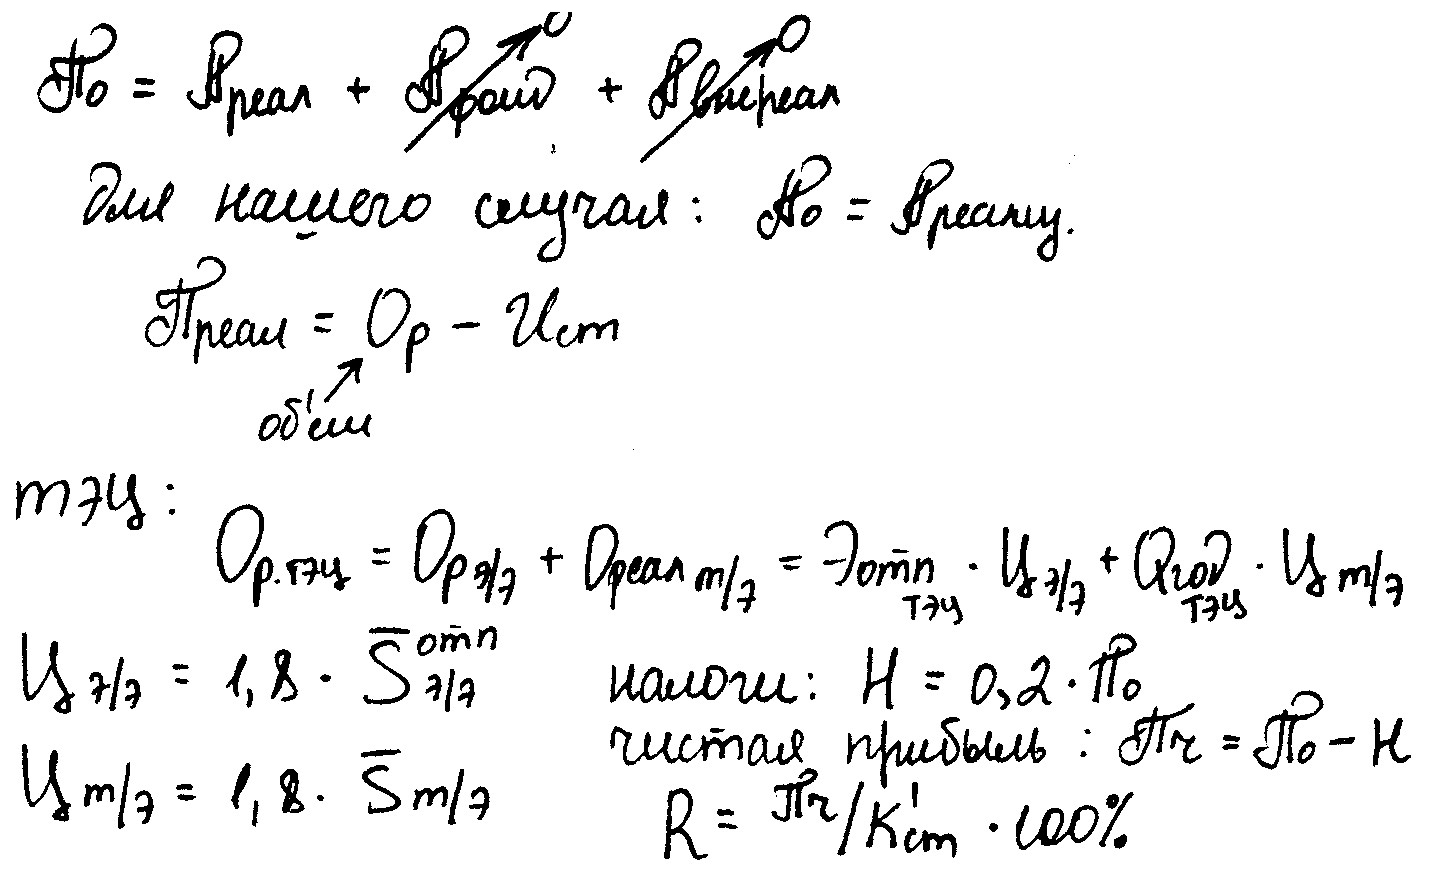 По = Преал + Пфонд → 0 + Пвнереал → 0
для нашего случая: По = Преализ.
Преал = Ор - Ист
об'ём
ТЭЦ:
Ор.ТЭЦ = Орэ/э + Ореал т/э = Эотп ТЭЦ · Цэ/э + Qгод ТЭЦ · Цт/э
Цэ/э = 1,8 · S̅э/э отп
налоги: Н = 0,2 · По
чистая прибыль: Пч = По - Н
Цт/э = 1,8 · S̅т/э
R = Пч/К'ст · 100%